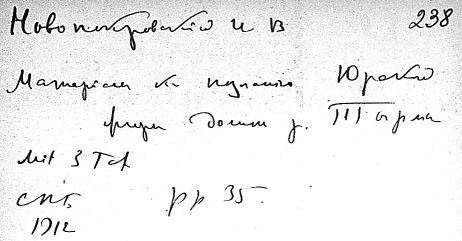 Новопокровский И В 238
Материалы к познанию Юрской
фауны долины р.
Mit 3 Taf
СПБ pp 35.
1912